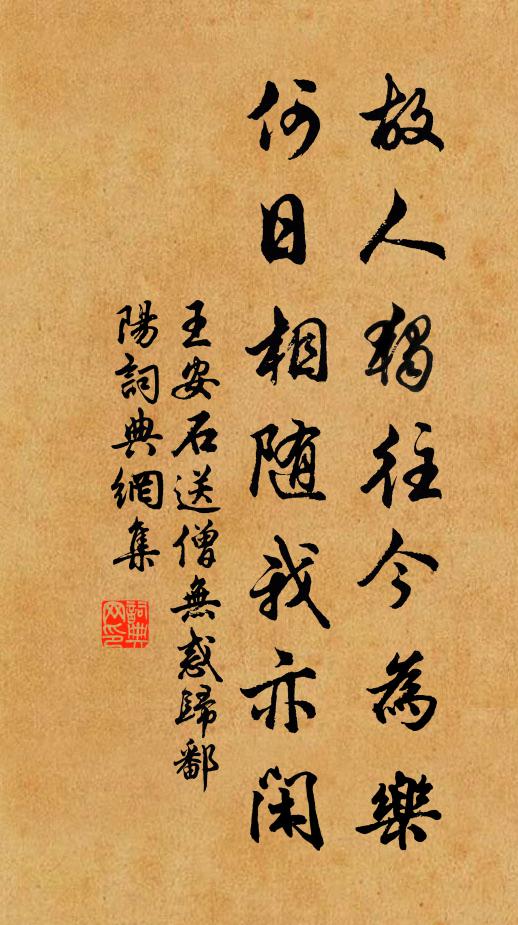 故人獨往今為樂
何日相随我亦閑
王安石送僧無惑歸鄱
陽詞典網集
詞典網印